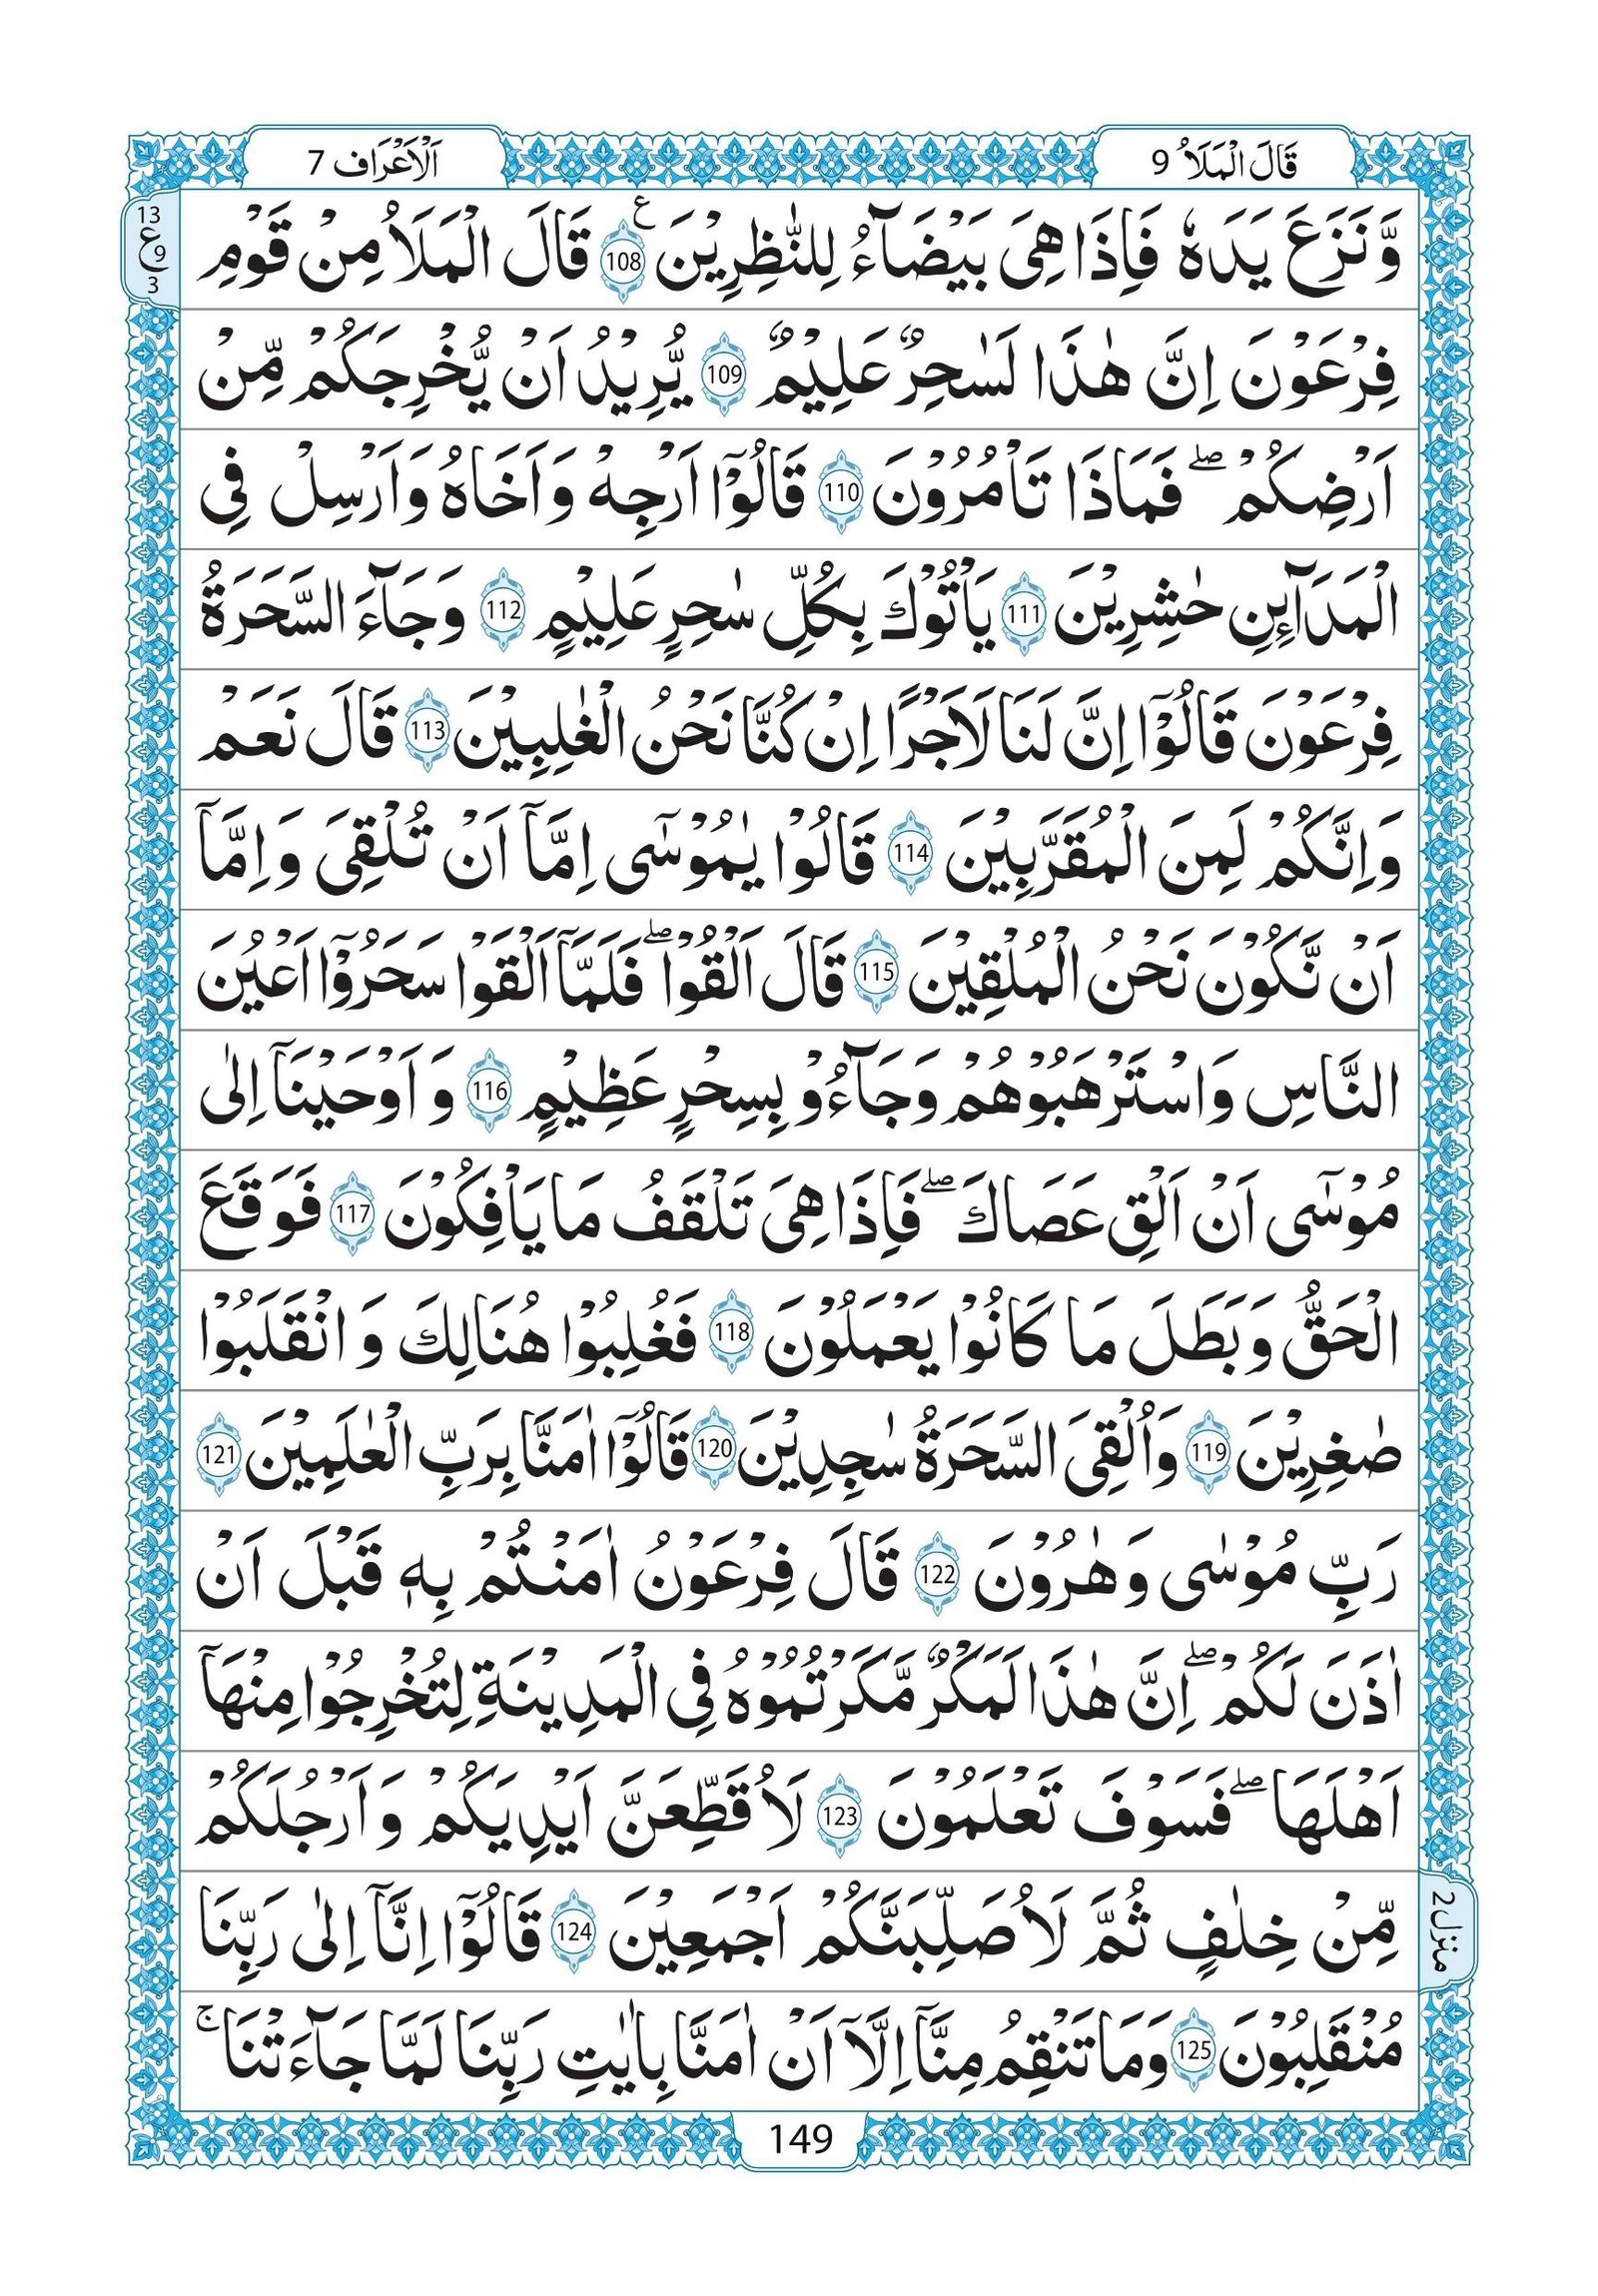 قَالَ الْمَلَاُ 9
اَلْاَعْرَاف 7
13
ع
9
3
وَّ نَزَعَ يَدَهٗ فَاِذَا هِىَ بَيْضَآءُ لِلنّٰظِرِيْنَ ࣖ 108 قَالَ الْمَلَاُ مِنْ قَوْمِ
فِرْعَوْنَ اِنَّ هٰذَا لَسٰحِرٌ عَلِيْمٌ 109 يُّرِيْدُ اَنْ يُّخْرِجَكُمْ مِّنْ
اَرْضِكُمْ ۖ فَمَاذَا تَاْمُرُوْنَ 110 قَالُوْۤا اَرْجِهْ وَاَخَاهُ وَاَرْسِلْ فِى
الْمَدَآٮِٕنِ حٰشِرِيْنَ 111 يَاْتُوْكَ بِكُلِّ سٰحِرٍ عَلِيْمٍ 112 وَجَآءَ السَّحَرَةُ
فِرْعَوْنَ قَالُوْۤا اِنَّ لَنَا لَاَجْرًا اِنْ كُنَّا نَحْنُ الْغٰلِبِيْنَ 113 قَالَ نَعَمْ
وَاِنَّكُمْ لَمِنَ الْمُقَرَّبِيْنَ 114 قَالُوْا يٰمُوْسٰٓى اِمَّاۤ اَنْ تُلْقِىَ وَاِمَّاۤ
اَنْ نَّكُوْنَ نَحْنُ الْمُلْقِيْنَ 115 قَالَ اَلْقُوْا ۖ فَلَمَّاۤ اَلْقَوْا سَحَرُوْۤا اَعْيُنَ
النَّاسِ وَاسْتَرْهَبُوْهُمْ وَجَآءُوْ بِسِحْرٍ عَظِيْمٍ 116 وَ اَوْحَيْنَاۤ اِلٰى
مُوْسٰٓى اَنْ اَلْقِ عَصَاكَ ۖ فَاِذَا هِىَ تَلْقَفُ مَا يَاْفِكُوْنَ 117 فَوَقَعَ
الْحَقُّ وَبَطَلَ مَا كَانُوْا يَعْمَلُوْنَ 118 فَغُلِبُوْا هُنَالِكَ وَ انْقَلَبُوْا
صٰغِرِيْنَ 119 وَاُلْقِىَ السَّحَرَةُ سٰجِدِيْنَ 120 قَالُوْۤا اٰمَنَّا بِرَبِّ الْعٰلَمِيْنَ 121
رَبِّ مُوْسٰى وَهٰرُوْنَ 122 قَالَ فِرْعَوْنُ اٰمَنْتُمْ بِهٖ قَبْلَ اَنْ
اٰذَنَ لَكُمْ ۖ اِنَّ هٰذَا لَمَكْرٌ مَّكَرْتُمُوْهُ فِى الْمَدِيْنَةِ لِتُخْرِجُوْا مِنْهَاۤ
اَهْلَهَا ۖ فَسَوْفَ تَعْلَمُوْنَ 123 لَاُقَطِّعَنَّ اَيْدِيَكُمْ وَاَرْجُلَكُمْ
مِّنْ خِلٰفٍ ثُمَّ لَاُصَلِّبَنَّكُمْ اَجْمَعِيْنَ 124 قَالُوْۤا اِنَّاۤ اِلٰى رَبِّنَا
مُنْقَلِبُوْنَ 125 وَمَا تَنْقِمُ مِنَّاۤ اِلَّاۤ اَنْ اٰمَنَّا بِاٰيٰتِ رَبِّنَا لَمَّا جَآءَتْنَا ۚ
منزل 2
149